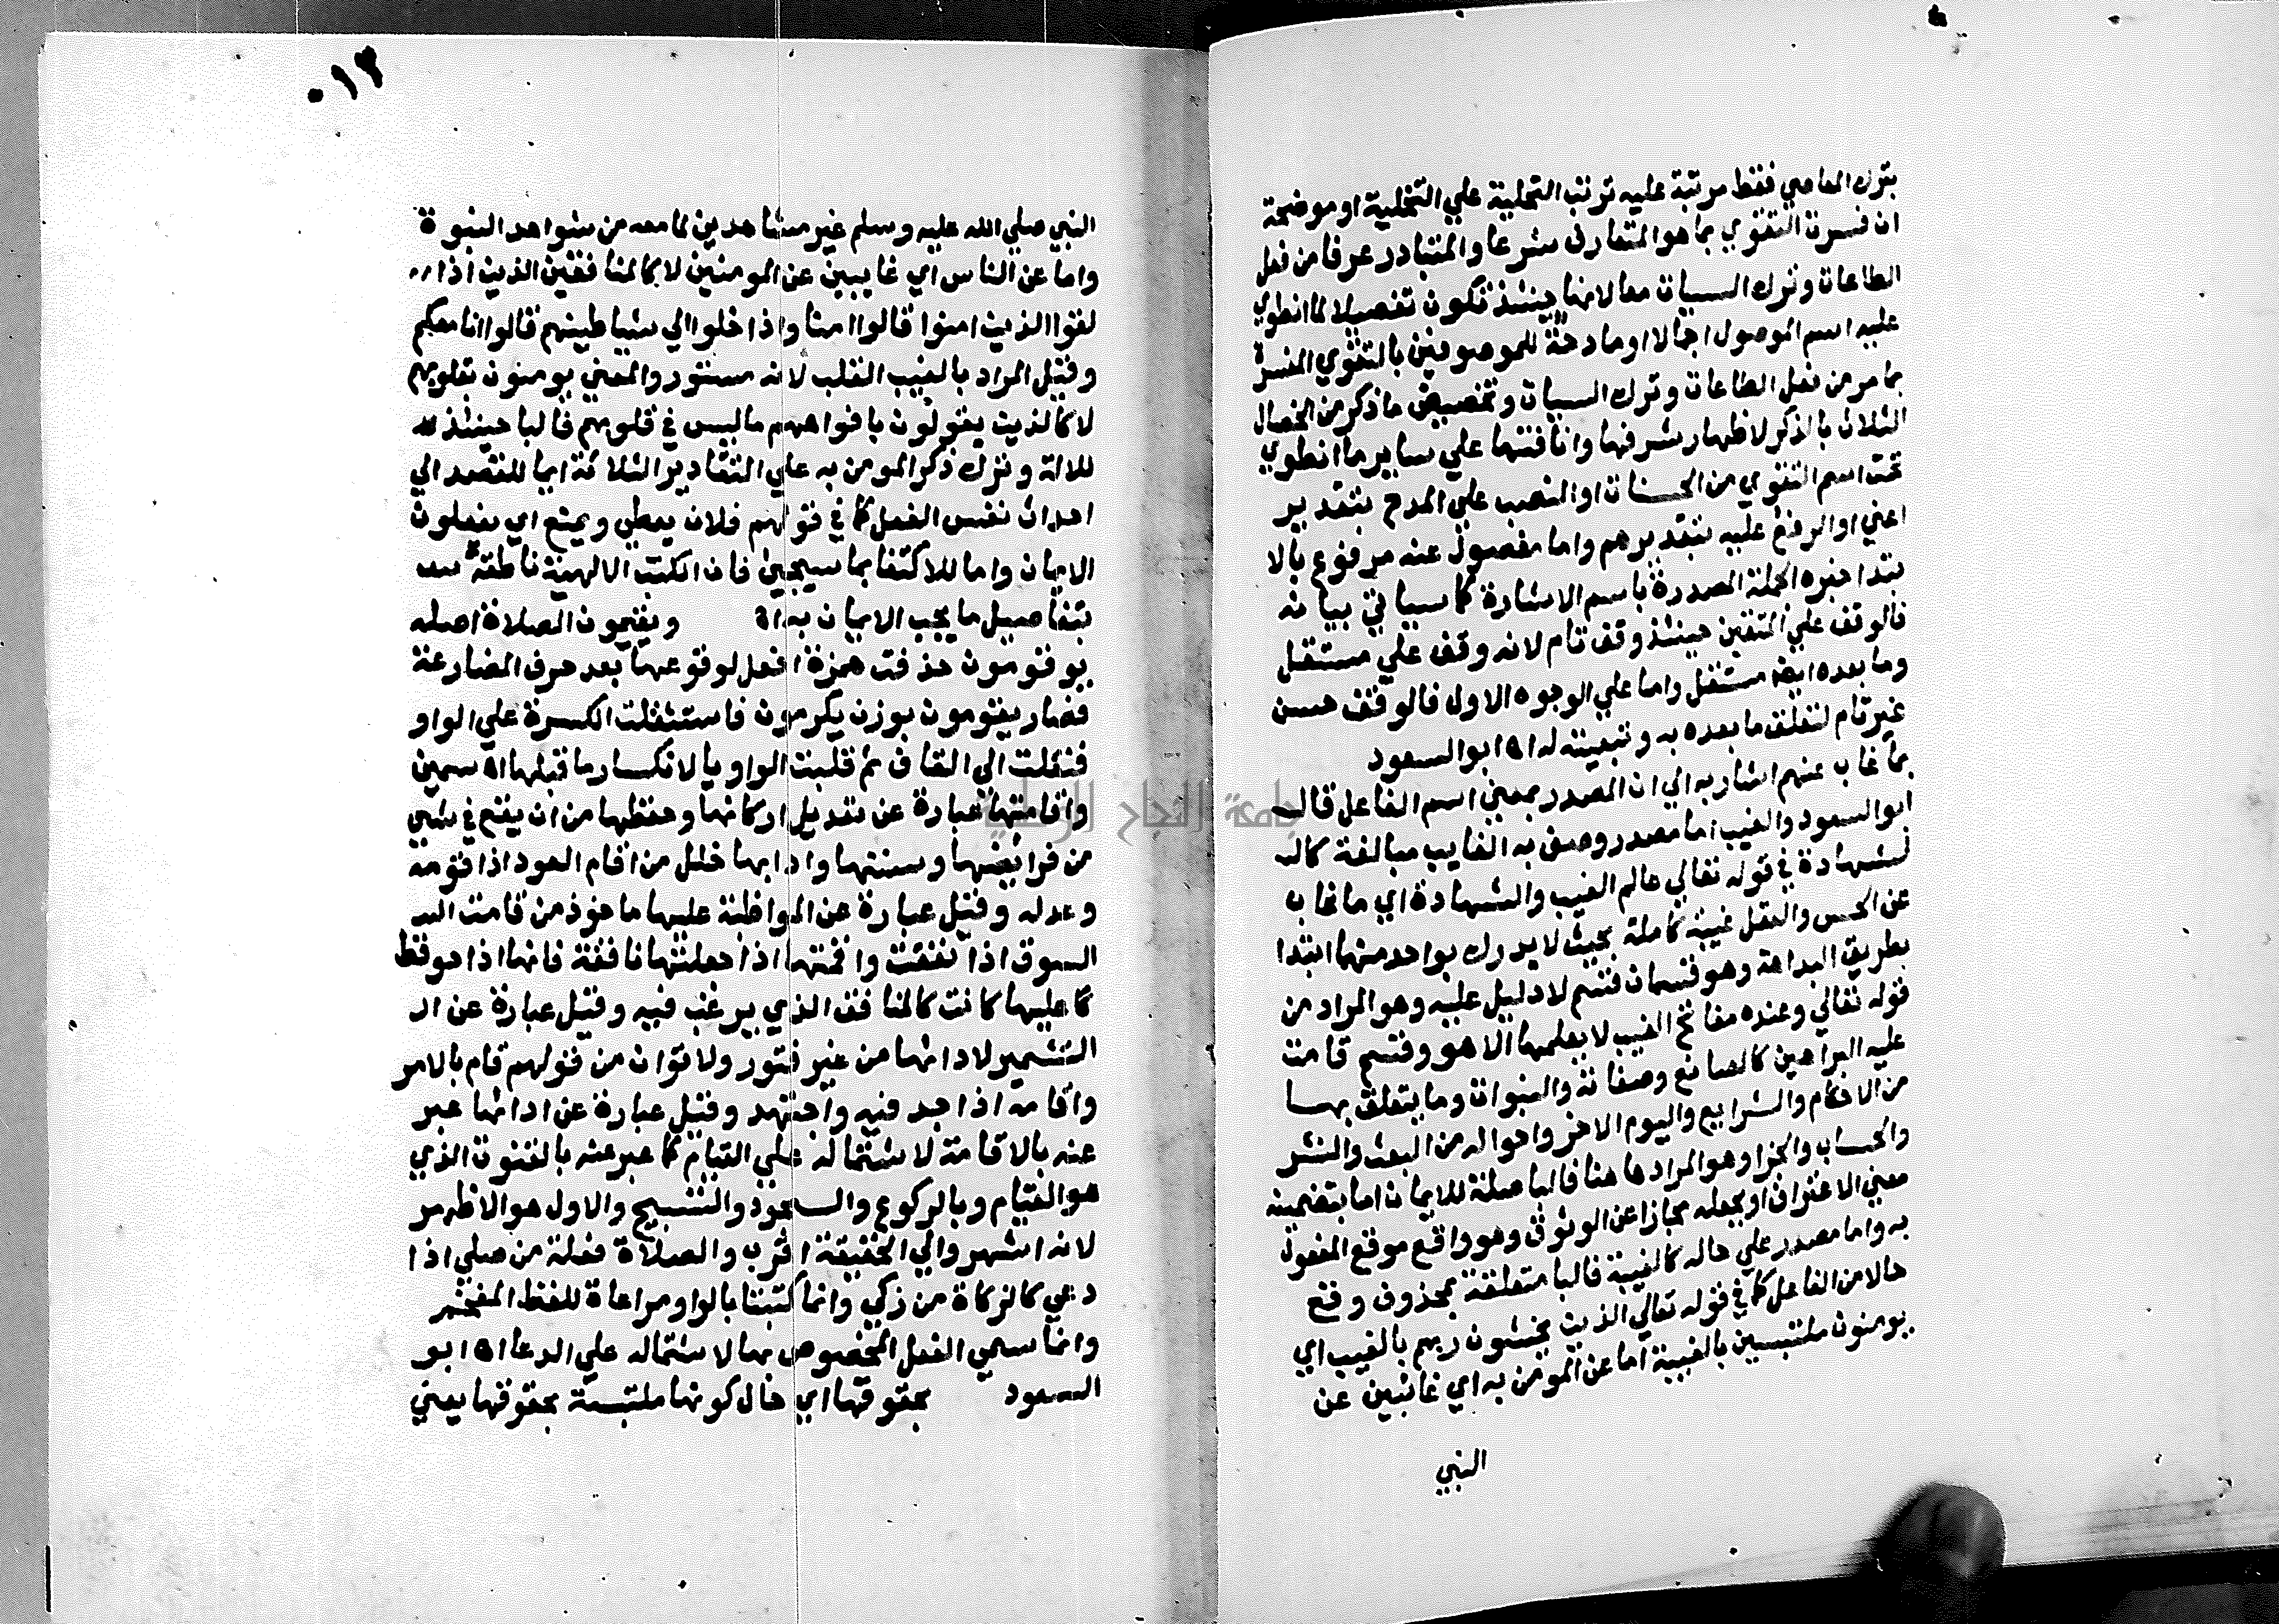 بترك المعاصي فقط مرتبة عليه ترتب التحلية علي التخلية او موضحة
ان فسرت التقوي بما هو المتعارف شرعا والمتبادر عرفا من فعل
الطاعات وترك السيات معا لانها حينئذ تكون تفصيلا لما انطوي
عليه اسم الموصول اجمالا او مادحة للموصوفين بالتقوي المفسرة
بما مر من فعل الطاعات وترك السيات وتخصيص ما ذكر من الخصال
الثلاث بالذكر لاظهار شرفها وانافتها علي ساير ما انطوي
تحت اسم التقوي من الحسنات او النصب علي المدح بتقدير
اعني او الرفع عليه بتقديرهم واما مفصول عنه مرفوع بالا
بتدا خبره الجملة المصدرة باسم الاشارة كما سياتي بيانه
فالوقف علي المتقين حينئذ وقف تام لانه وقف علي مستقل
وما بعده ايضا مستقل واما علي الوجوه الاول فالوقف حسن
غير تام لتعلق ما بعده به وتبعيته له اه ابو السعود
بما غاب عنهم اشار به الي ان المصدر بمعني اسم الفاعل قال
ابو السعود والغيب اما مصدر وصف به الغايب مبالغة كالـ
لشهادة في قوله تعالي عالم الغيب والشهادة اي ما غاب
عن الحس والعقل غيبة كاملة بحيث لا يدرك بواحد منهما ابتدا
بطريق البداهة وهو قسمان قسم لا دليل عليه وهو المراد من
قوله تعالي وعنده مفاتح الغيب لا يعلمها الا هو وقسم قامت
عليه البراهين كالصانع وصفاته والنبوات وما يتعلق بها
من الاحكام والشرايع واليوم الاخر واحواله من البعث والنشر
والحساب والجزا وهو المراد هاهنا فالبا صلة للايمان اما بتضمينه
معني الاعتراف او بجعله مجازا عن الوثوق وهو واقع موقع المفعول
به واما مصدر علي حاله كالغيبة فالبا متعلقة بمحذوف وقع
حالا من الفاعل كما في قوله تعالي الذين يخشون ربهم بالغيب اي
يومنون ملتبسين بالغيبة اما عن المومن به اي غائبين عن
النبي
٠١٢
النبي صلي الله عليه وسلم غير مشاهدين لما معه من شواهد النبوة
واما عن الناس اي غايبين عن المومنين لا كالمنافقين الذين اذا
لقوا الذين امنوا قالوا امنا واذا خلوا الي شياطينهم قالوا انا معكم
وقيل المراد بالغيب القلب لانه مستور والمعني يومنون بقلوبهم
لا كالذين يقولون بافواههم ما ليس في قلوبهم فالبا حينئذ لـ
للالة وترك ذكر المومن به علي التقادير الثلاثة اما للقصد الي
احداث نفس الفعل كما في قولهم فلان يعطي ويمنع اي يفعلون
الايمان واما للاكتفا بما سيجيئ فان الكتب الالهية ناطقة
بتفاصيل ما يجب الايمان به اه ويقيمون الصلاة اصله
يوقومون حذفت همزة افعل لوقوعها بعد حرف المضارعة
فصار يقومون بوزن يكرمون فاستثقلت الكسرة علي الواو
فنقلت الي القاف ثم قلبت الواو يا لانكسار ما قبلها اه سمين
واقامتها عبارة عن تعديل اركانها وحفظها من ان يقع في شي
من فرايضها وسننها وادابها خلل من اقام العود اذا قومه
وعدله وقيل عبارة عن المواظبة عليها ماخوذ من قامت السـ
السوق اذا نفقت واقمتها اذا جعلتها نافقة فانها اذا حوفظ
عليها كانت كالنافق الذي يرغب فيه وقيل عبارة عن الـ
التشمير لادائها من غير فتور ولا توان من قولهم قام بالامر
واقامه اذا جد فيه واجتهد وقيل عبارة عن ادائها عبر
عنه بالاقامة لاشتماله علي القيام كما عبر عنه بالقنوت الذي
هو القيام وبالركوع والسجود والتسبيح والاول هو الاظهر
لانه اشهر والي الحقيقة اقرب والصلاة فعلة من صلي اذا
دعي كالزكاة من زكي وانما كتبتا بالواو مراعاة للفظ المفخم
وانما سمي الفعل المخصوص بها لاشتماله علي الدعا اه ابو
السعود بحقوقها اي حال كونها ملتبسة بحقوقها يعني
جامعة النجاح الوطنية